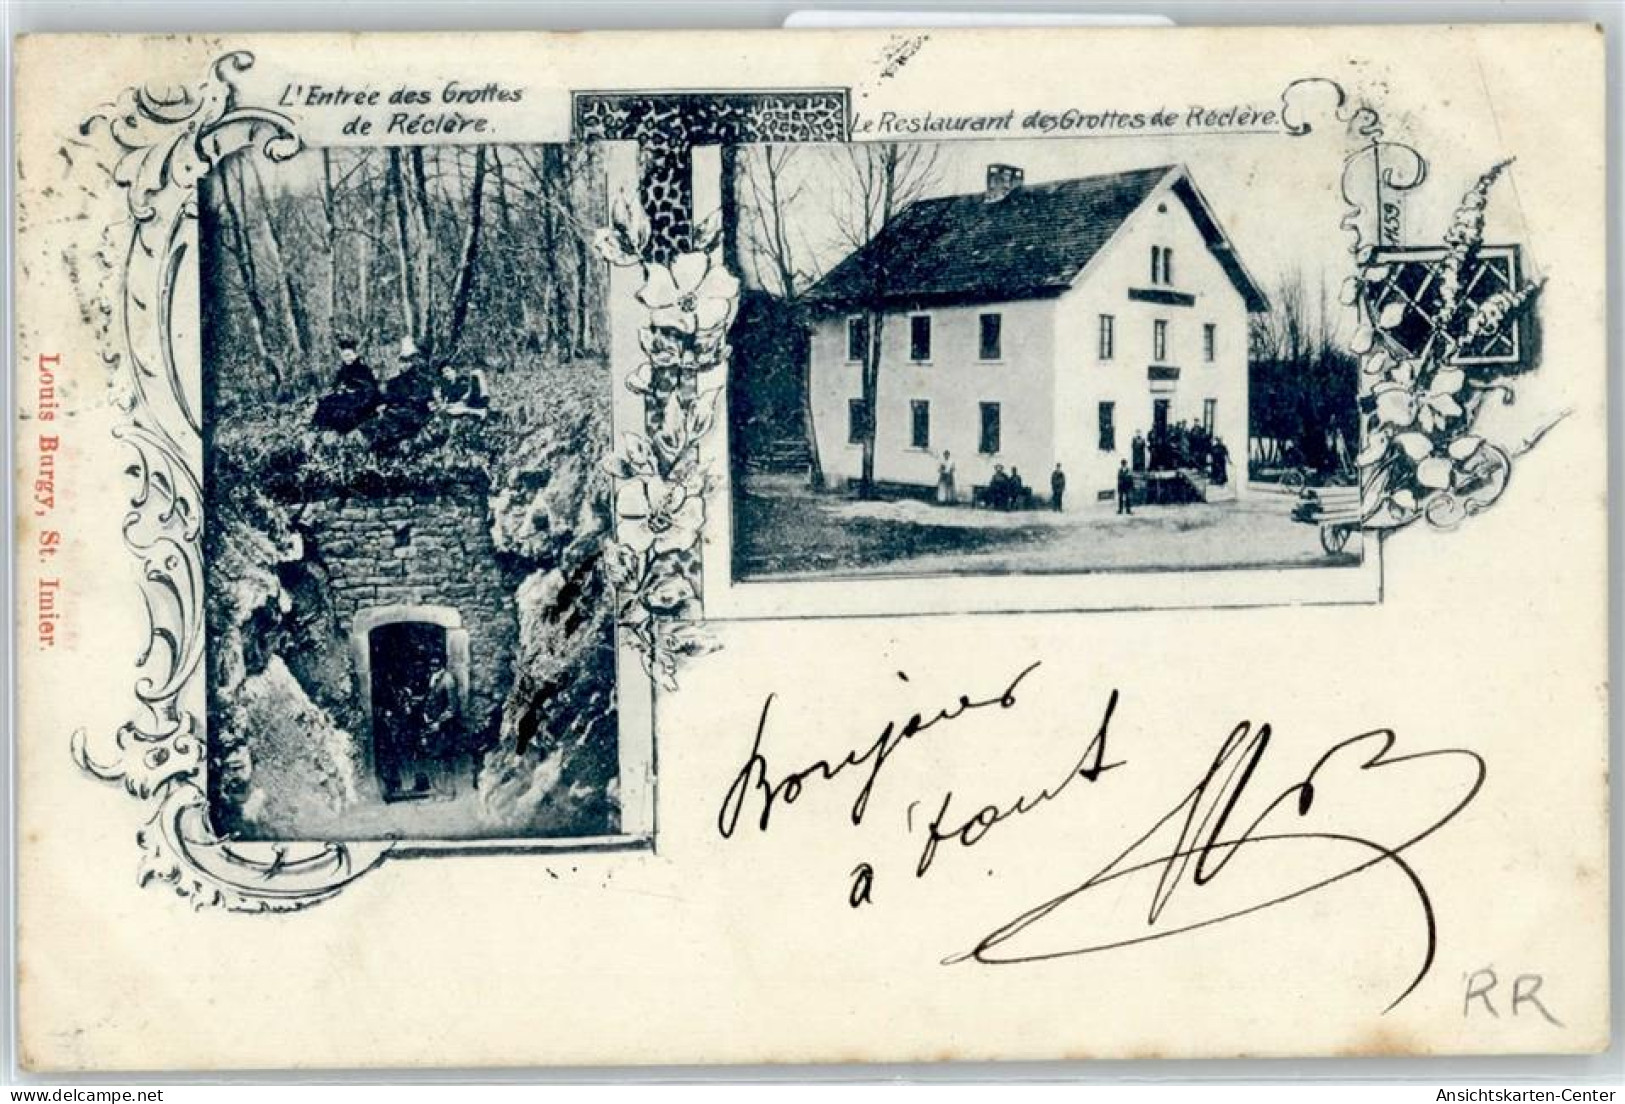 L'Entrée des Grottes
de Réclère.
Le Restaurant des Grottes de Réclère.
1439
Louis Burgy, St. Imier.
Bonjour
à tout
RR
AnsichtsKarten-Center